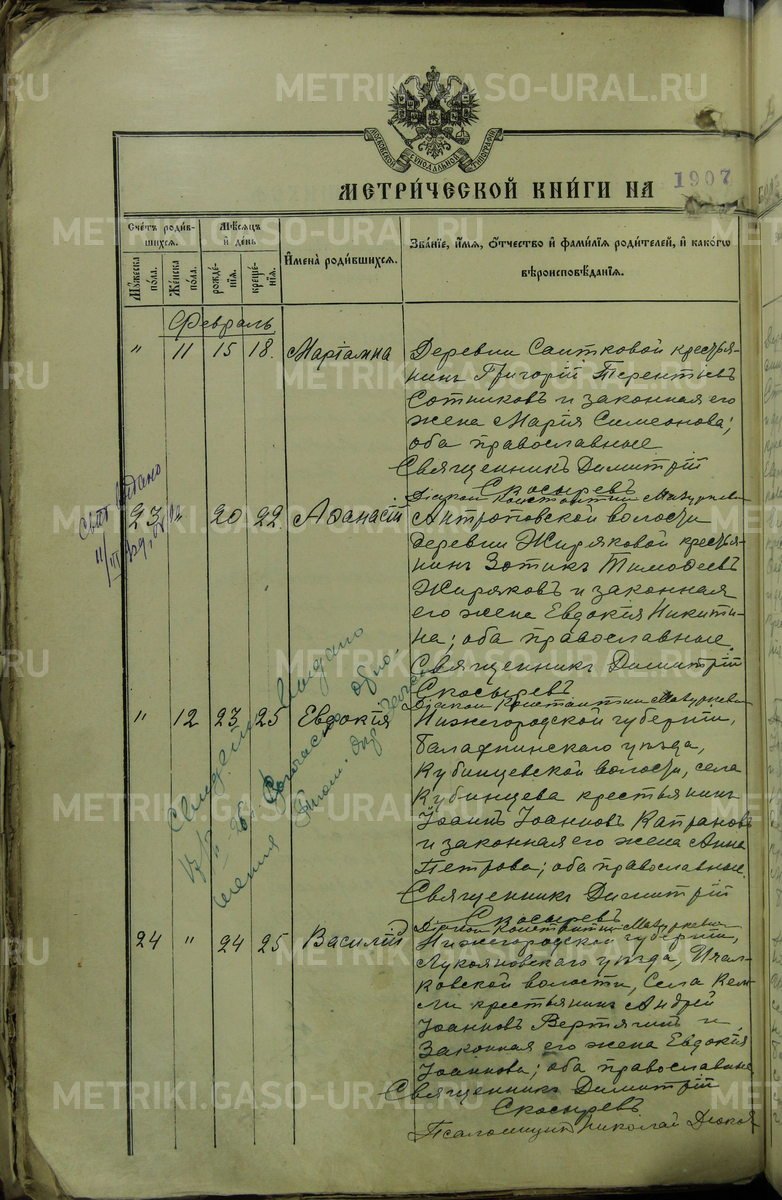 METRIKI.GASO-URAL.RU
МОСКОВСКОЙ СѴНОДАЛЬНОЙ ТИПОГРАФІИ
МЕТРИ́ЧЕСКОЙ КНИ́ГИ НА 1907
Сче́тъ роди́в-
шихсѧ.
Мѣ́сѧцъ
и҆ де́нь
Мꙋ́жеска
по́ла.
Же́нска
по́ла.
рожде́-
нїѧ.
креще́-
нїѧ.
И҆мена̀ роди́вшихсѧ.
Зва́нїе, и҆́мѧ, ѻ҆́тчество и҆ фами́лїѧ роди́телей, и҆ како́гѡ
вѣроисповѣ́данїѧ.
Февраль
" 11 15 18. Маріамна
Деревни Саитковой крестья-
нинъ Григорій Терентіевъ
Сотниковъ и законная его
жена Марія Симеонова;
оба православные.
Священникъ Димитрій
Скосыревъ
Діаконъ Константинъ
Выдано
23 " 20 22. Аѳанасій
Антроповской волости
деревни Жиряковой кресть-
нинъ Зотикъ Тимоѳеевъ
Жиряковъ и законная
его жена Евдокія Никити-
на; оба православные.
Священникъ Димитрій
Скосыревъ
Діаконъ Константинъ
" 12 23 25 Евдокія
Нижегородской губерніи,
Балахнинскаго уѣзда,
Кубинцевской волости, села
Кубинцева крестьянинъ
Іоаннъ Іоанновъ Капрановъ
и законная его жена Анна
Петрова; оба православные.
Священникъ Димитрій
Скосыревъ
Діаконъ Константинъ
Выдано
24 " 24 25 Василій
Нижегородской губерніи,
Лукояновскаго уѣзда, Ичал-
ковской волости, Села Кем-
ли крестьянинъ Андрей
Іоанновъ Вертячій и
Законная его жена Евдокія
Іоаннова; оба православные
Священникъ Димитрій
Скосыревъ
Псаломщикъ Николай